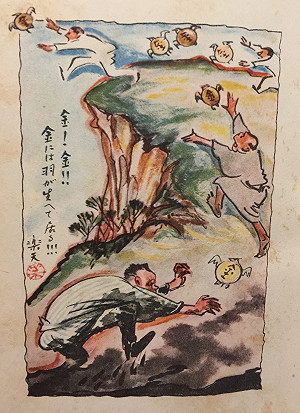 金！金!!
金には羽が生へて居る!!!
楽天